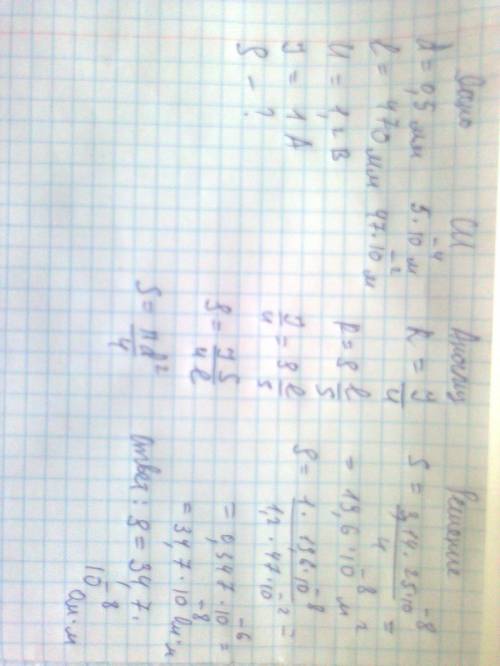 Дано
d = 0,5 мм
l = 470 мм
U = 1,2 В
I = 1 А
ρ - ?
СИ
5·10⁻⁴ м
47·10⁻² м
Анализ
R = I/U
R = ρ l/S
I/U = ρ l/S
ρ = IS/Ul
S = πd²/4
Решение
S = 3,14·25·10⁻⁸/4 =
= 19,6·10⁻⁸ м²
ρ = 1·19,6·10⁻⁸/1,2·47·10⁻² =
= 0,347·10⁻⁶ =
= 34,7·10⁻⁸ Ом·м
Ответ: ρ = 34,7·
10⁻⁸ Ом·м